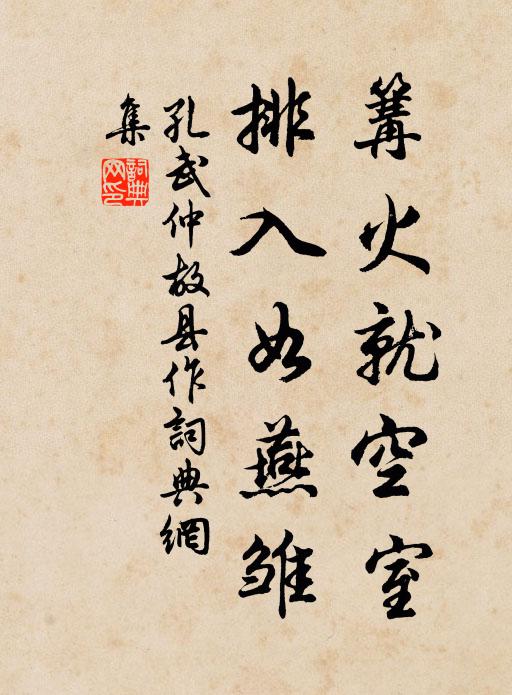 篝火就空室
排入如燕雏
孔武仲故县作詞典網
集
詞典網印